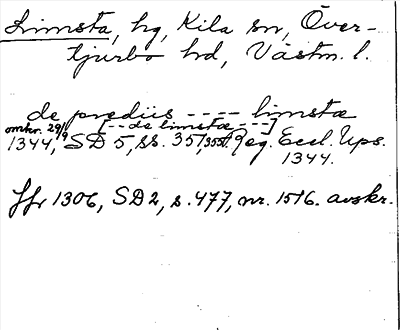 Limsta, hg, Kila sn, Över-
tjurbo hd, Västm. l.
de prediis ---- limstæ
[--de limstæ---]
omkr. 29/9
1344, SD 5, ss. 357, 355f. Reg. Eccl. Ups.
1344.
ffr 1306, SD 2, s. 477, nr. 1516. avskr.